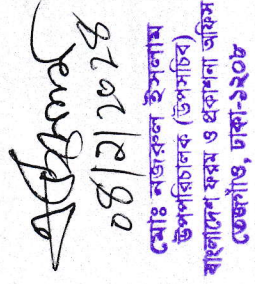 ০৪/২/২০২৪
মোঃ নজরুল ইসলাম
উপপরিচালক (উপসচিব)
বাংলাদেশ ফরম ও প্রকাশনা অফিস
তেজগাঁও, ঢাকা-১২০৮